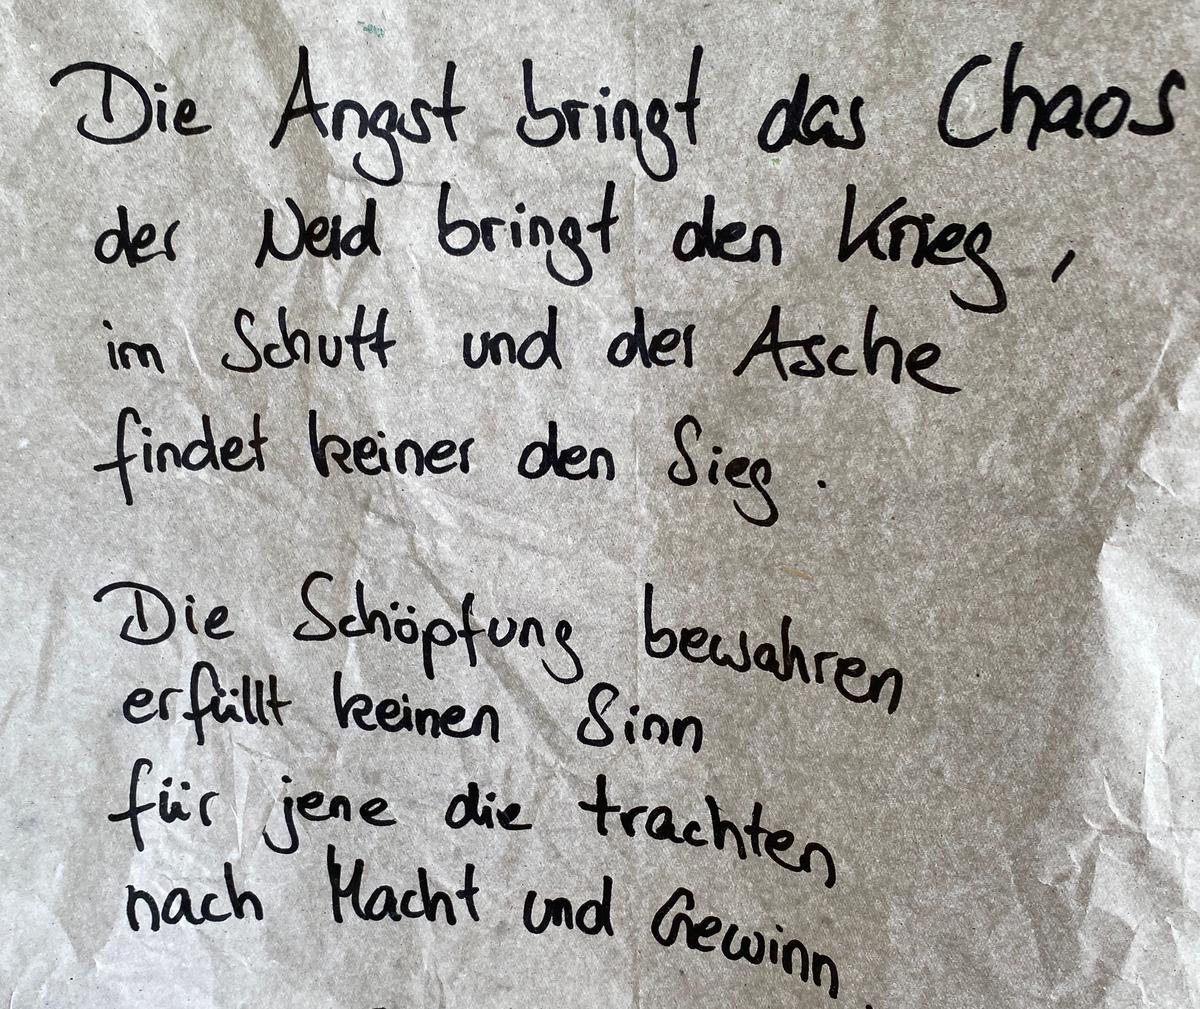 Die Angst bringt das Chaos
der Neid bringt den Krieg,
im Schutt und der Asche
findet keiner den Sieg.
Die Schöpfung bewahren
erfüllt keinen Sinn
für jene die trachten
nach Macht und Gewinn